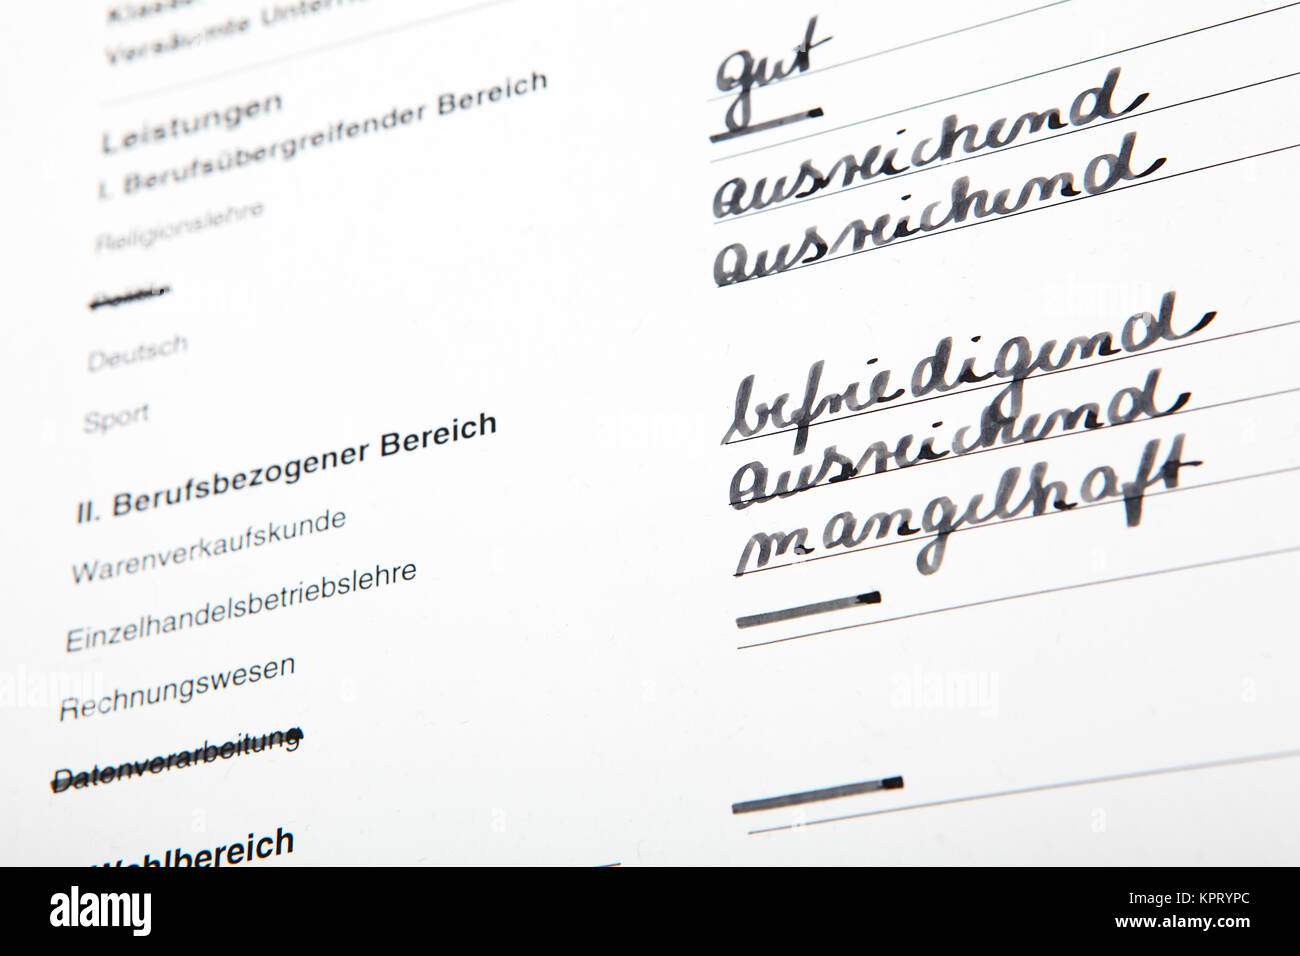 Klasse
Versäumte Untern
Leistungen
I. Berufsübergreifender Bereich
Religionslehre gut
Politik
Deutsch ausreichend
Sport ausreichend
II. Berufsbezogener Bereich
Warenverkaufskunde befriedigend
Einzelhandelsbetriebslehre ausreichend
Rechnungswesen mangelhaft
Datenverarbeitung
Wahlbereich
alamy
Image ID: KPRYPC
www.alamy.com